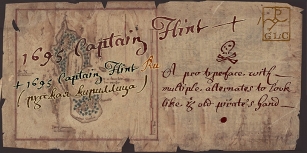 1695 Captain Flint
P
GLC
+ 1695 Captain Flint fin
(русская кириллица)
A pro typeface with
multiple alternates to look
like a old pirate's hand